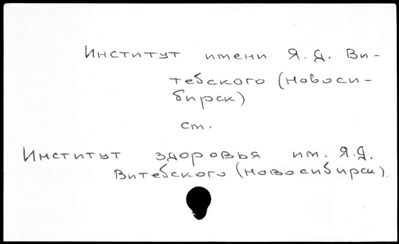 Институт имени Я.Д. Ви-
тебского (Новоси-
бирск)
см.
Институт здоровья им. Я.Д.
Витебского (Новосибирск).